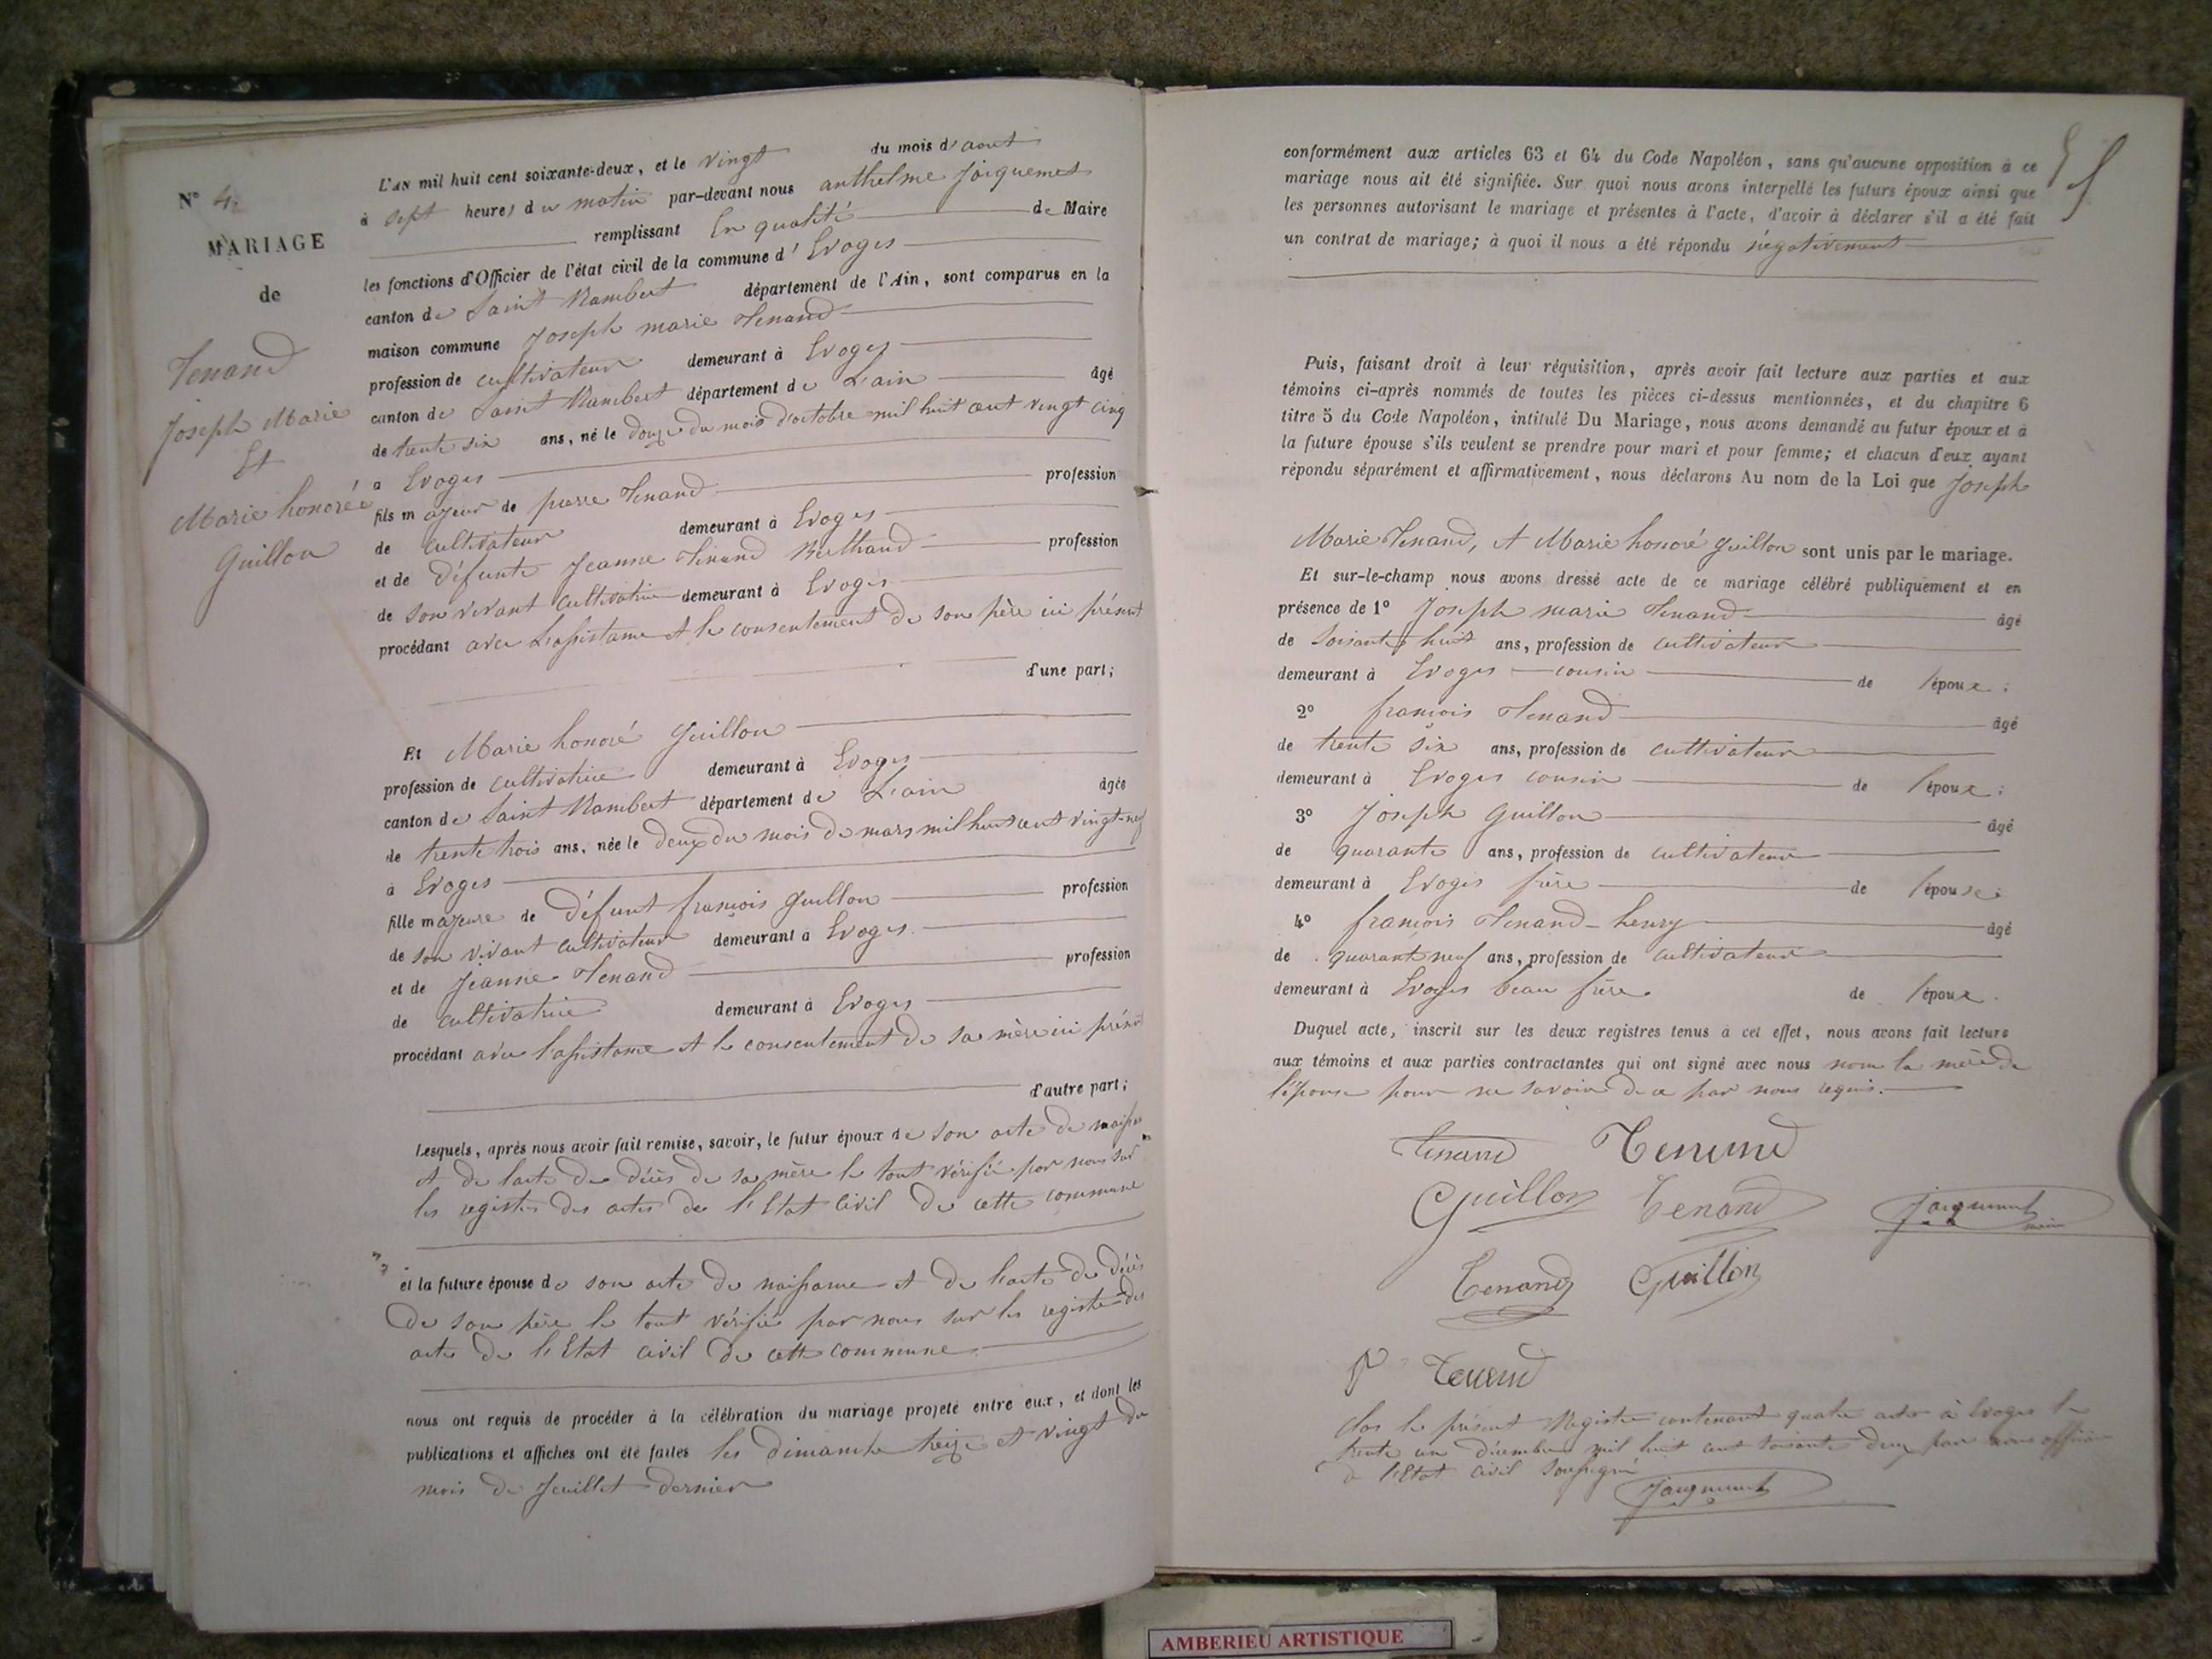 N° 4
MARIAGE
de
Tenand
Joseph Marie
Et
Marie honorée
Guillon
L'AN mil huit cent soixante-deux, et le vingt du mois d'aout
à sept heures du matin par-devant nous anthelme Joiquemet
remplissant En qualité de Maire
les fonctions d'Officier de l'état civil de la commune d'Evoges
canton de Saint Rambert département de l'Ain, sont comparus en la
maison commune Joseph marie Tenand
profession de cultivateur demeurant à Evoges
canton de Saint Rambert département de L'ain âgé
de trente six ans, né le douze du mois d'octobre mil huit cent vingt cinq
à Evoges
fils majeur de pierre Tenand profession
de cultivateur demeurant à Evoges
et de défunte Jeanne Tenand Berthand profession
de son vivant cultivatrice demeurant à Evoges
procédant avec L'assistance et le consentement de son père ici présent
d'une part;
Et Marie honoré Guillon
profession de cultivatrice demeurant à Evoges
canton de Saint Rambert département de L'ain âgée
de trente trois ans, née le deux du mois de mars mil huit cent vingt-neuf
à Evoges
fille majeure de défunt françois Guillon profession
de son vivant cultivateur demeurant à Evoges
et de Jeanne Tenand profession
de cultivatrice demeurant à Evoges
procédant avec l'assistance et le consentement de sa mère ici présente
d'autre part;
Lesquels, après nous avoir fait remise, savoir, le futur époux de son acte de naissance
et de l'acte de décès de sa mère le tout vérifié par nous sur
les registres des actes de l'Etat Civil de cette commune
et la future épouse de son acte de naissance et de l'acte de décès
de son père le tout vérifié par nous sur les registres des
actes de l'Etat civil de cette commune
nous ont requis de procéder à la célébration du mariage projeté entre eux, et dont les
publications et affiches ont été faites les dimanche treize et vingt du
mois de Juillet dernier
conformément aux articles 63 et 64 du Code Napoléon, sans qu'aucune opposition à ce
mariage nous ait été signifiée. Sur quoi nous avons interpellé les futurs époux ainsi que
les personnes autorisant le mariage et présentes à l'acte, d'avoir à déclarer s'il a été fait
un contrat de mariage; à quoi il nous a été répondu négativement
Puis, faisant droit à leur réquisition, après avoir fait lecture aux parties et aux
témoins ci-après nommés de toutes les pièces ci-dessus mentionnées, et du chapitre 6
titre 5 du Code Napoléon, intitulé Du Mariage, nous avons demandé au futur époux et à
la future épouse s'ils veulent se prendre pour mari et pour femme; et chacun d'eux ayant
répondu séparément et affirmativement, nous déclarons Au nom de la Loi que Joseph
Marie Tenand, et Marie honoré Guillon sont unis par le mariage.
Et sur-le-champ nous avons dressé acte de ce mariage célébré publiquement et en
présence de 1° Joseph marie Tenand âgé
de soixante huit ans, profession de cultivateur
demeurant à Evoges cousin de l'époux;
2° françois Tenand âgé
de trente six ans, profession de cultivateur
demeurant à Evoges cousin de l'époux;
3° Joseph Guillon âgé
de quarante ans, profession de cultivateur
demeurant à Evoges frère de l'épouse;
4° françois Tenand-henry âgé
de quarante neuf ans, profession de cultivateur
demeurant à Evoges beau frère de l'époux.
Duquel acte, inscrit sur les deux registres tenus à cet effet, nous avons fait lecture
aux témoins et aux parties contractantes qui ont signé avec nous non la mère de
l'épouse pour ne savoir de ce par nous requis.
Tenand Tenand
Guillon Tenand Joiquemet
maire
Tenand Guillon
P Tenand
Clos le présent Registre contenant quatre actes à Evoges le
trente un décembre mil huit cent soixante deux par nous officier
de l'Etat civil soussigné
Joiquemet
AMBERIEU ARTISTIQUE